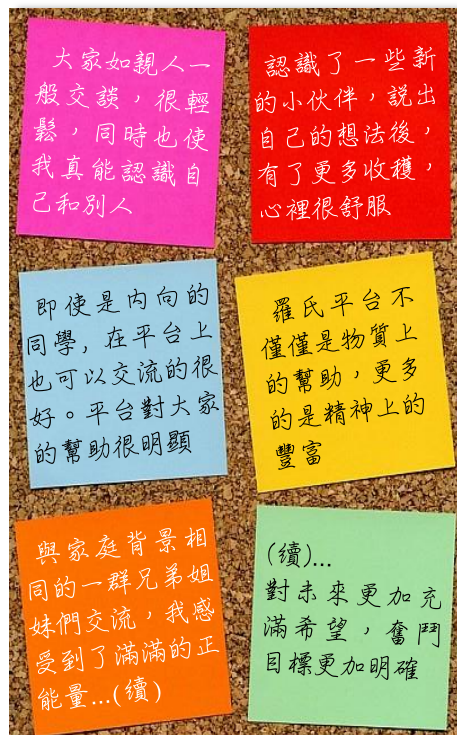 大家如親人一
般交談，很輕
鬆，同時也使
我真能認識自
己和別人
認識了一些新
的小伙伴，説出
自己的想法後，
有了更多收穫，
心裡很舒服
即使是內向的
同學, 在平台上
也可以交流的很
好。平台對大家
的幫助很明顯
羅氏平台不
僅僅是物質上
的幫助，更多
的是精神上的
豐富
與家庭背景相
同的一群兄弟姐
妹們交流，我感
受到了滿滿的正
能量...(續)
(續)...
對未來更加充
滿希望，奮鬥
目標更加明確